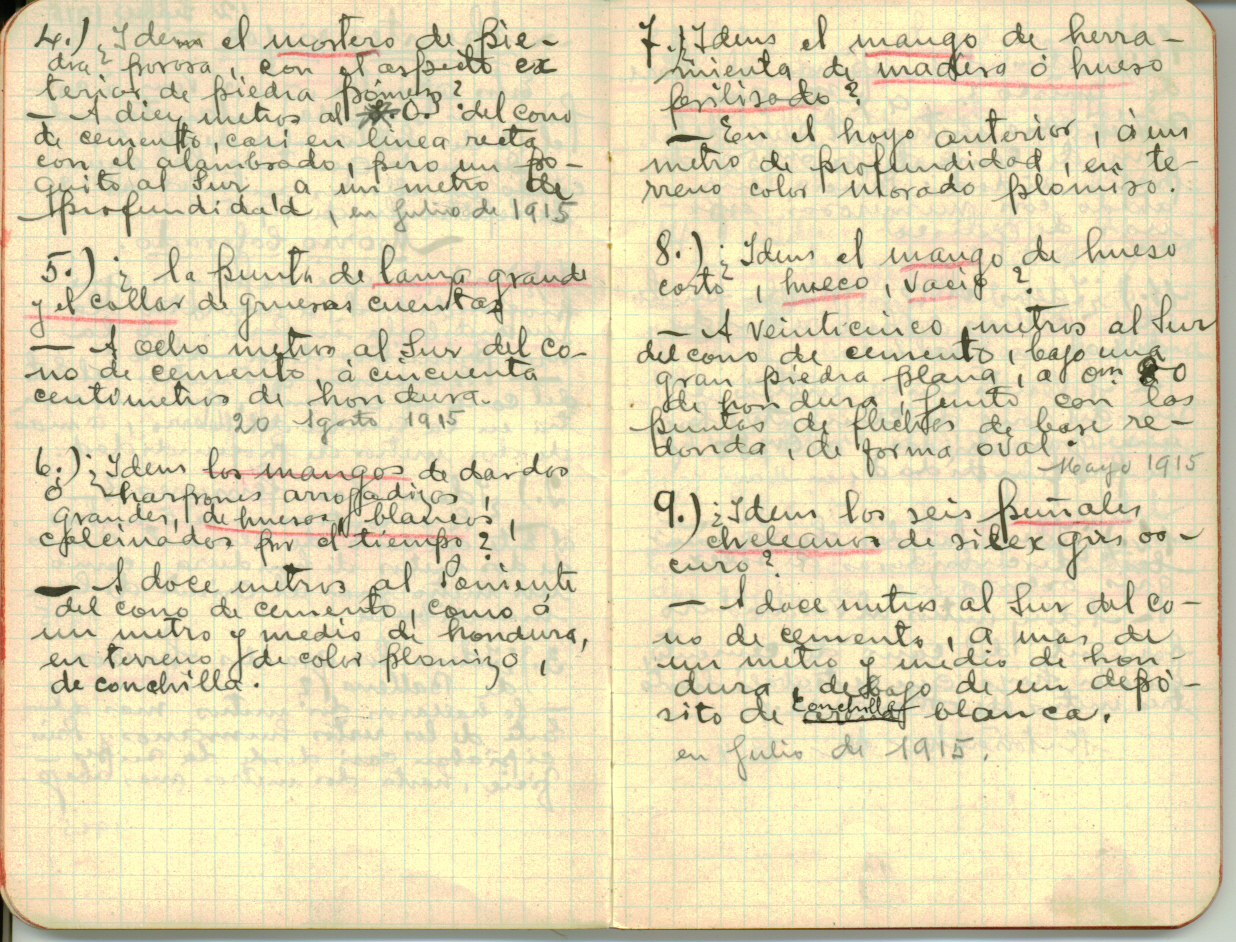 4.) ¿Idem el mortero de pie-
dra? porosa, con el aspecto ex
terior de piedra pómez?
— A diez metros al O. del cono
de cemento, casi en linea recta
con el alambrado, pero un po-
quito al Sur, a un metro de
profundidad, en Julio de 1915
5.) ¿ la punta de lanza grande
y el collar de gruesas cuentas
— A ocho metros al Sur del co-
no de cemento, á cincuenta
centimetros de hondura.
20 Agosto 1915
6.) ¿Idem los mangos de dardos
ó harpones arrojadizos,
grandes, de huesos blancos,
calcinados por el tiempo?
— A doce metros al Poniente
del cono de cemento, como á
un metro y medio de hondura,
en terreno de color plomizo,
de conchilla.
7.) ¿Idem el mango de herra-
mienta de madera ó hueso
fosilisado?
— En el hoyo anterior, á un
metro de profundidad, en te-
rreno color morado plomiso.
8.) ¿Idem el mango de hueso
corto, hueco, vacio?
— A veinticinco metros al Sur
del cono de cemento, bajo una
gran piedra plana, a 0m 80
de hondura, junto con las
puntas de flechas de base re-
donda, de forma oval.
Mayo 1915
9.) ¿Idem los seis puñales
cheleanos de silex gris os-
curo?
— A doce metros al Sur del co-
no de cemento, a mas de
un metro y medio de hon-
dura, debajo de un depó-
sito de conchilla blanca.
en Julio de 1915.